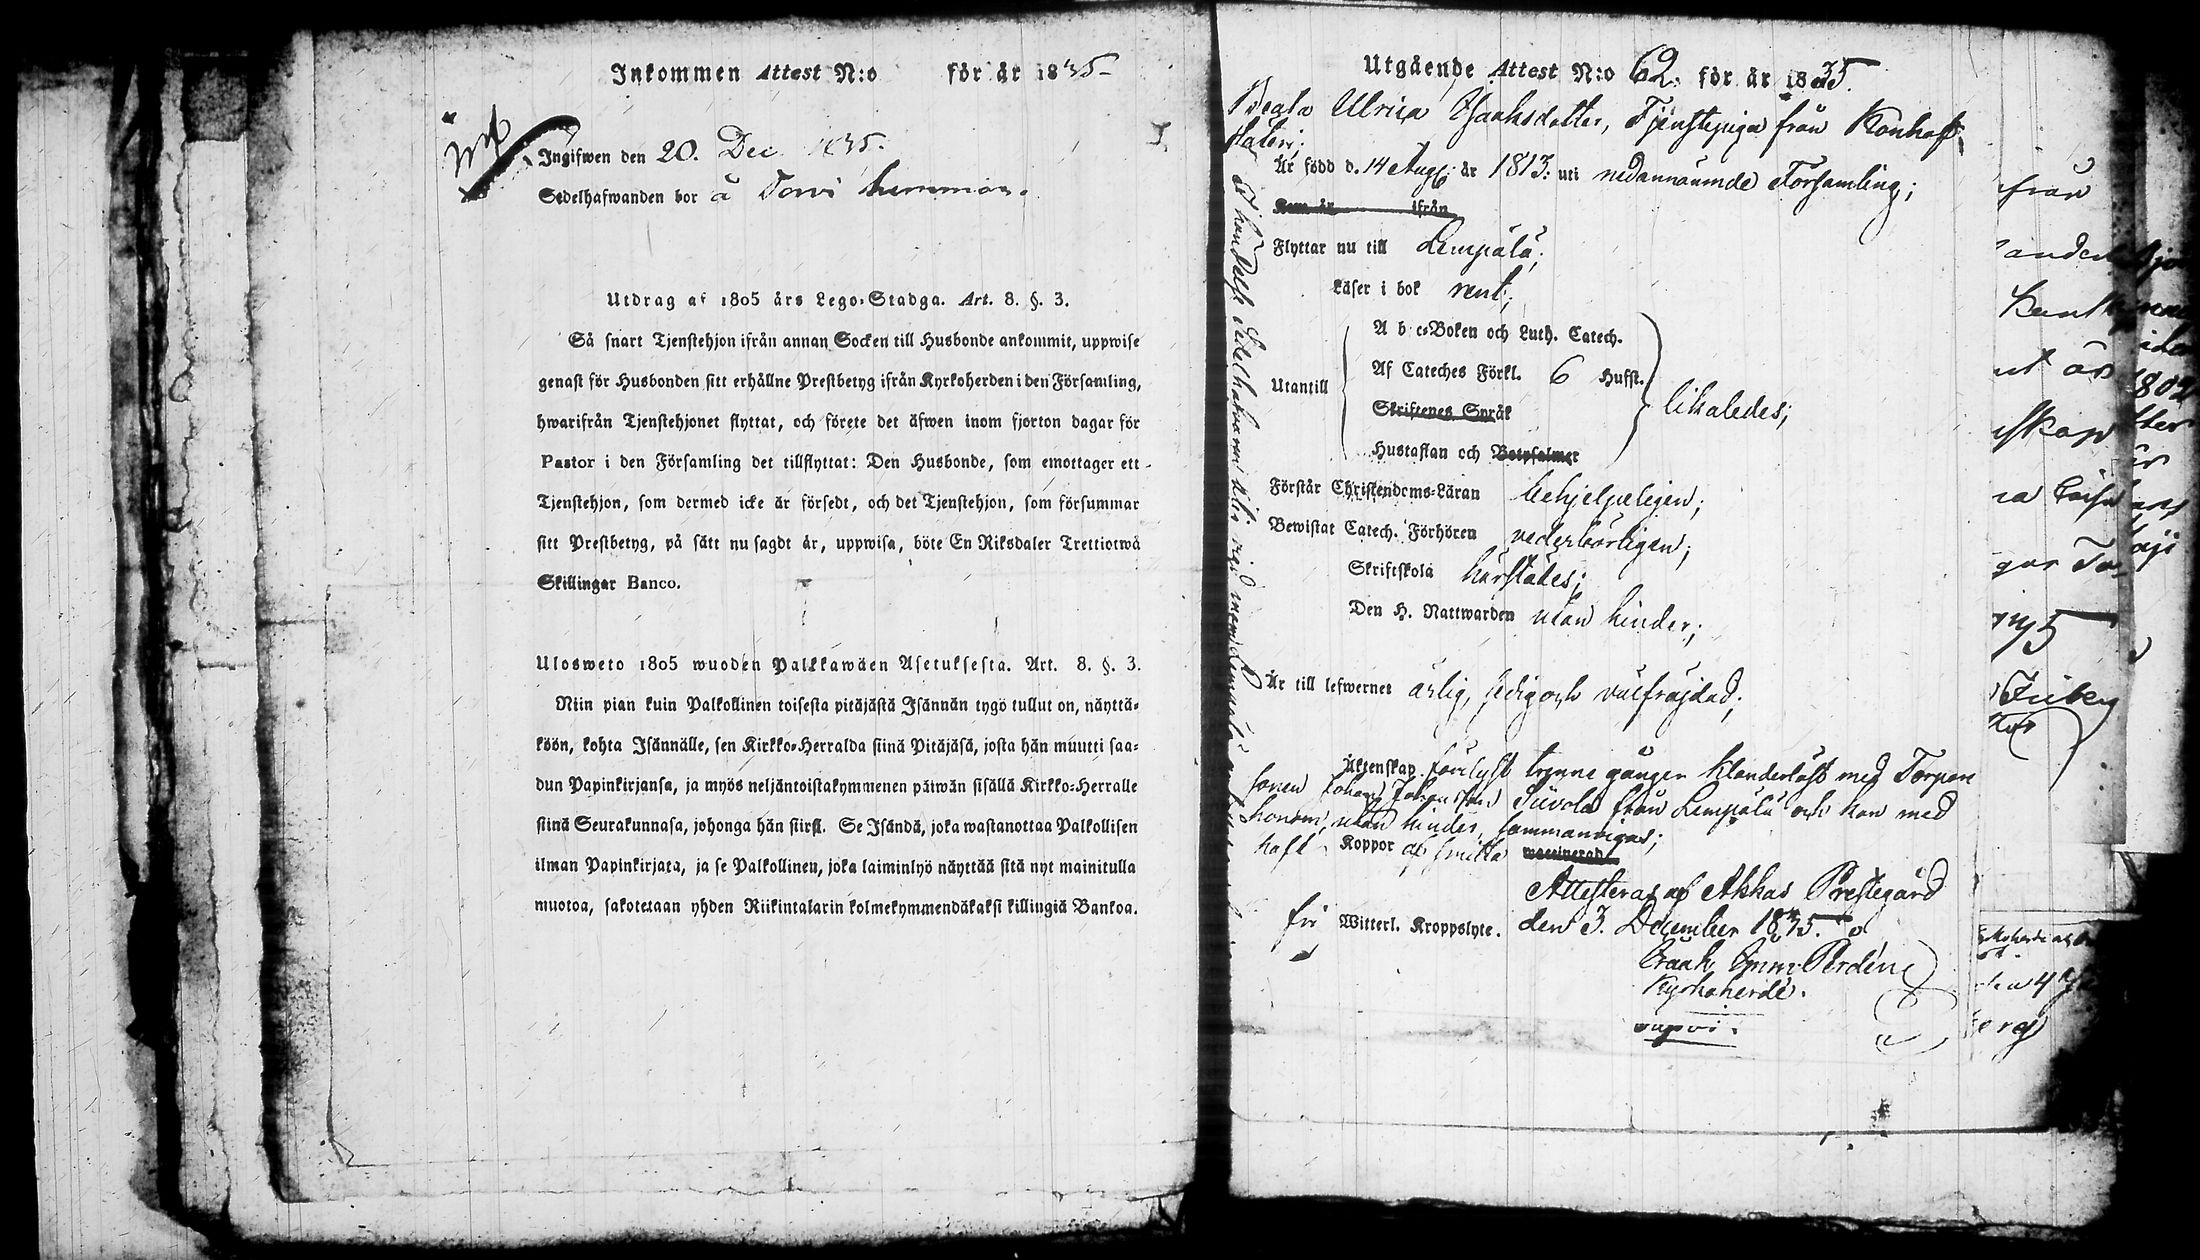 Inkommen Attest N:o för år 1835
Ingifwen den 20. Dec 1835.
Sedelhafwanden bor å Torvi hemman.
Utdrag af 1805 års Lego-Stadga. Art. 8. §. 3.
Så snart Tjenstehjon ifrån annan Socken till Husbonde ankommit, uppwise
genast för Husbonden sitt erhållne Prestbetyg ifrån Kyrkoherden i den Församling,
hwarifrån Tjenstehjonet flyttat, och förete det äfwen inom fjorton dagar för
Pastor i den Församling det tillflyttat: Den Husbonde, som emottager ett
Tjenstehjon, som dermed icke är försedt, och det Tjenstehjon, som försummar
sitt Prestbetyg, på sätt nu sagdt är, uppwisa, böte En Riksdaler Trettiotwå
Skillingar Banco.
Ulosweto 1805 wuoden Palkkawäen Asetuksesta. Art. 8. §. 3.
Niin pian kuin Palkollinen toisesta pitäjästä Isännän tygö tullut on, näyttä-
köön, kohta Isännälle, sen Kirkko-Herralda siinä Pitäjäsä, josta hän muutti saa-
dun Papinkirjansa, ja myös neljäntoistakymmenen päiwän sisällä Kirkko-Herralle
siinä Seurakunnasa, johonga hän siirsi. Se Isändä, joka wastanottaa Palkollisen
ilman Papinkirjata, ja se Palkollinen, joka laiminlyö näyttää sitä nyt mainitulla
muotoa, sakotetaan yhden Riikintalarin kolmekymmendäkaksi killingiä Bankoa.
Utgående Attest N:o 62. för år 1835.
Beata Ulrica Isaaksdotter, Tjenstepiga från Konho
Är född d. 14 Aug. år 1813: uti nedannämnde Församling;
Kom år ifrån
Flyttar nu till Lempälä;
Läser i bok rent;
A b c-Boken och Luth. Catech.
Utantill Af Cateches Förkl. 6 Hufst. likaledes;
Skriftenes Språk
Hustaflan och Botpsalmer
Förstår Christendoms-Läran behjelpeligen;
Bewistat Catech. Förhören vederbörligen;
Skriftskola härstädes;
Den H. Nattwarden utan hinder;
Är till lefwernet ärlig, sedig och välfräjdad;
Äktenskap förelyst trenne gånger klanderlöst med Torpare
sonen Johan Johansson Sievola från Lempälä och kan med
honom, utan hinder, sammanvigas;
haft Koppor af smitta waccinerad
Attesteras af Akkas Prestegård
fri Witterl. Kroppslyte. den 3. December 1835.
Isaak Emm. Perdén
Kyrkoherde.